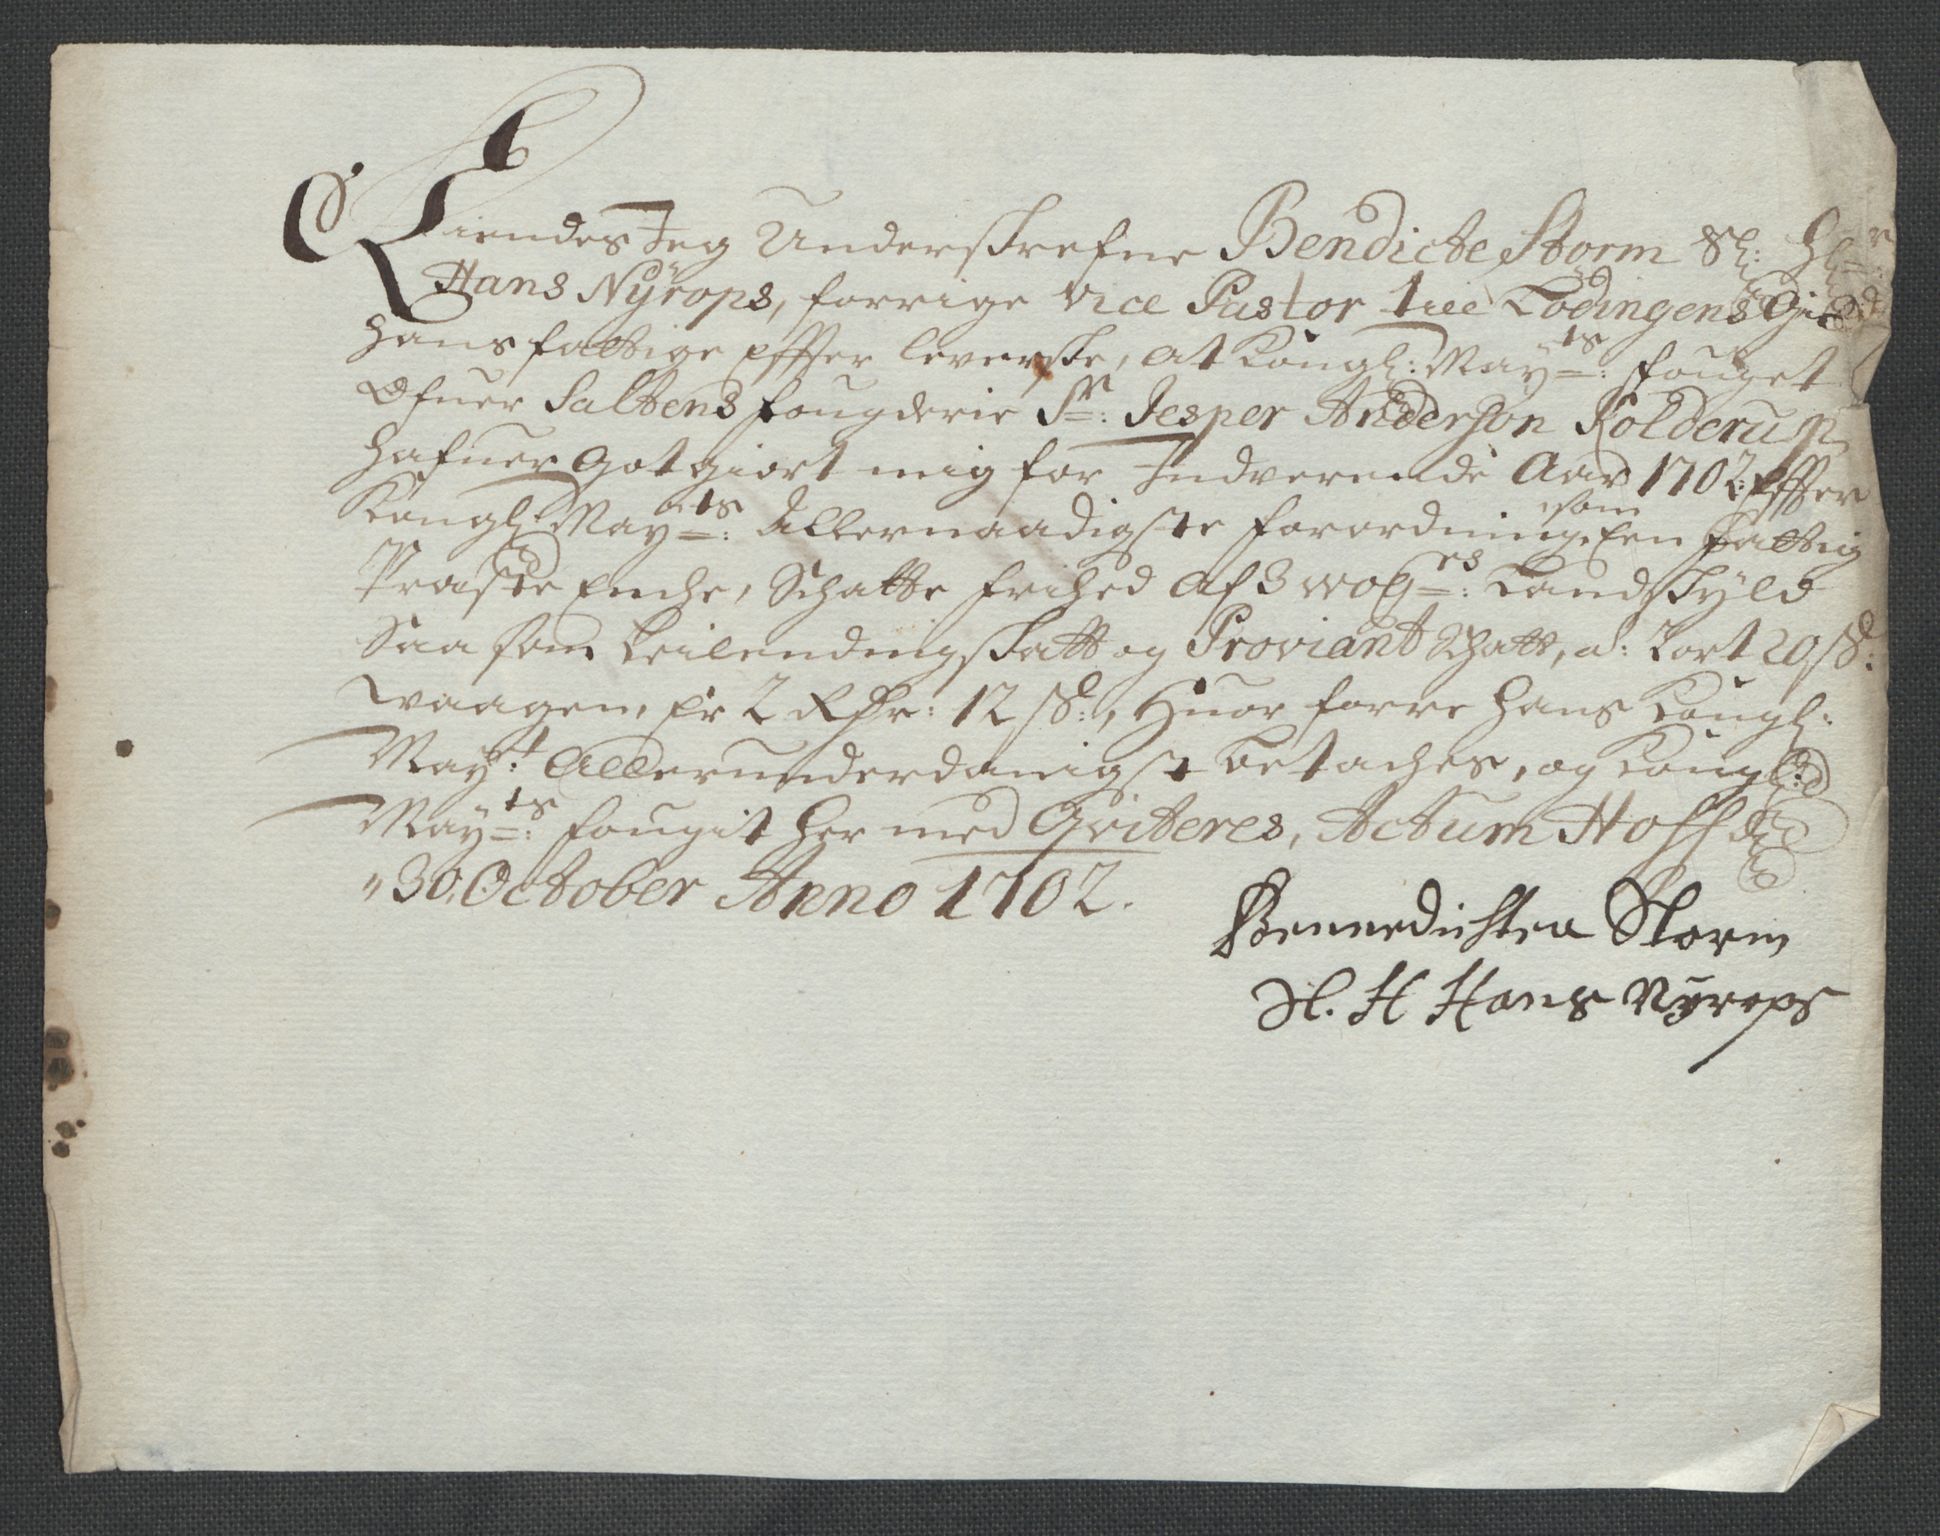 Kiendes Jeg Underskrefne Bendicte Storm Sl: Hr:
Hans Nyrops, forrige vice Pastor till Lødingens Gield
hans fattige Effter leverske, at Kongl: May:ts fouget
Ofuer Saltens fougderie Sr: Jesper Anderson Kolderup
hafuer Got giort mig for Indverende Aar 1702: Effter
Kongl: May:ts Allernaadigste forordning, som Een fattig
Præste Enche, Schatte frihed Af 3 wog:rs Landskyld
Saa som Leilendingskatt og Proviant Schatt, a: 1 ort 20 s:
waagen, Er 2 Rdr: 12 s:, Huor forre hans Kongl:
May:t Allerunderdanigst betaches, og Kongl:
May:ts fougit her med Qviteres, Actum Hoff d
30. October Anno 1702.
Bennedichtea Storm
Sl. H Hans Nyrops